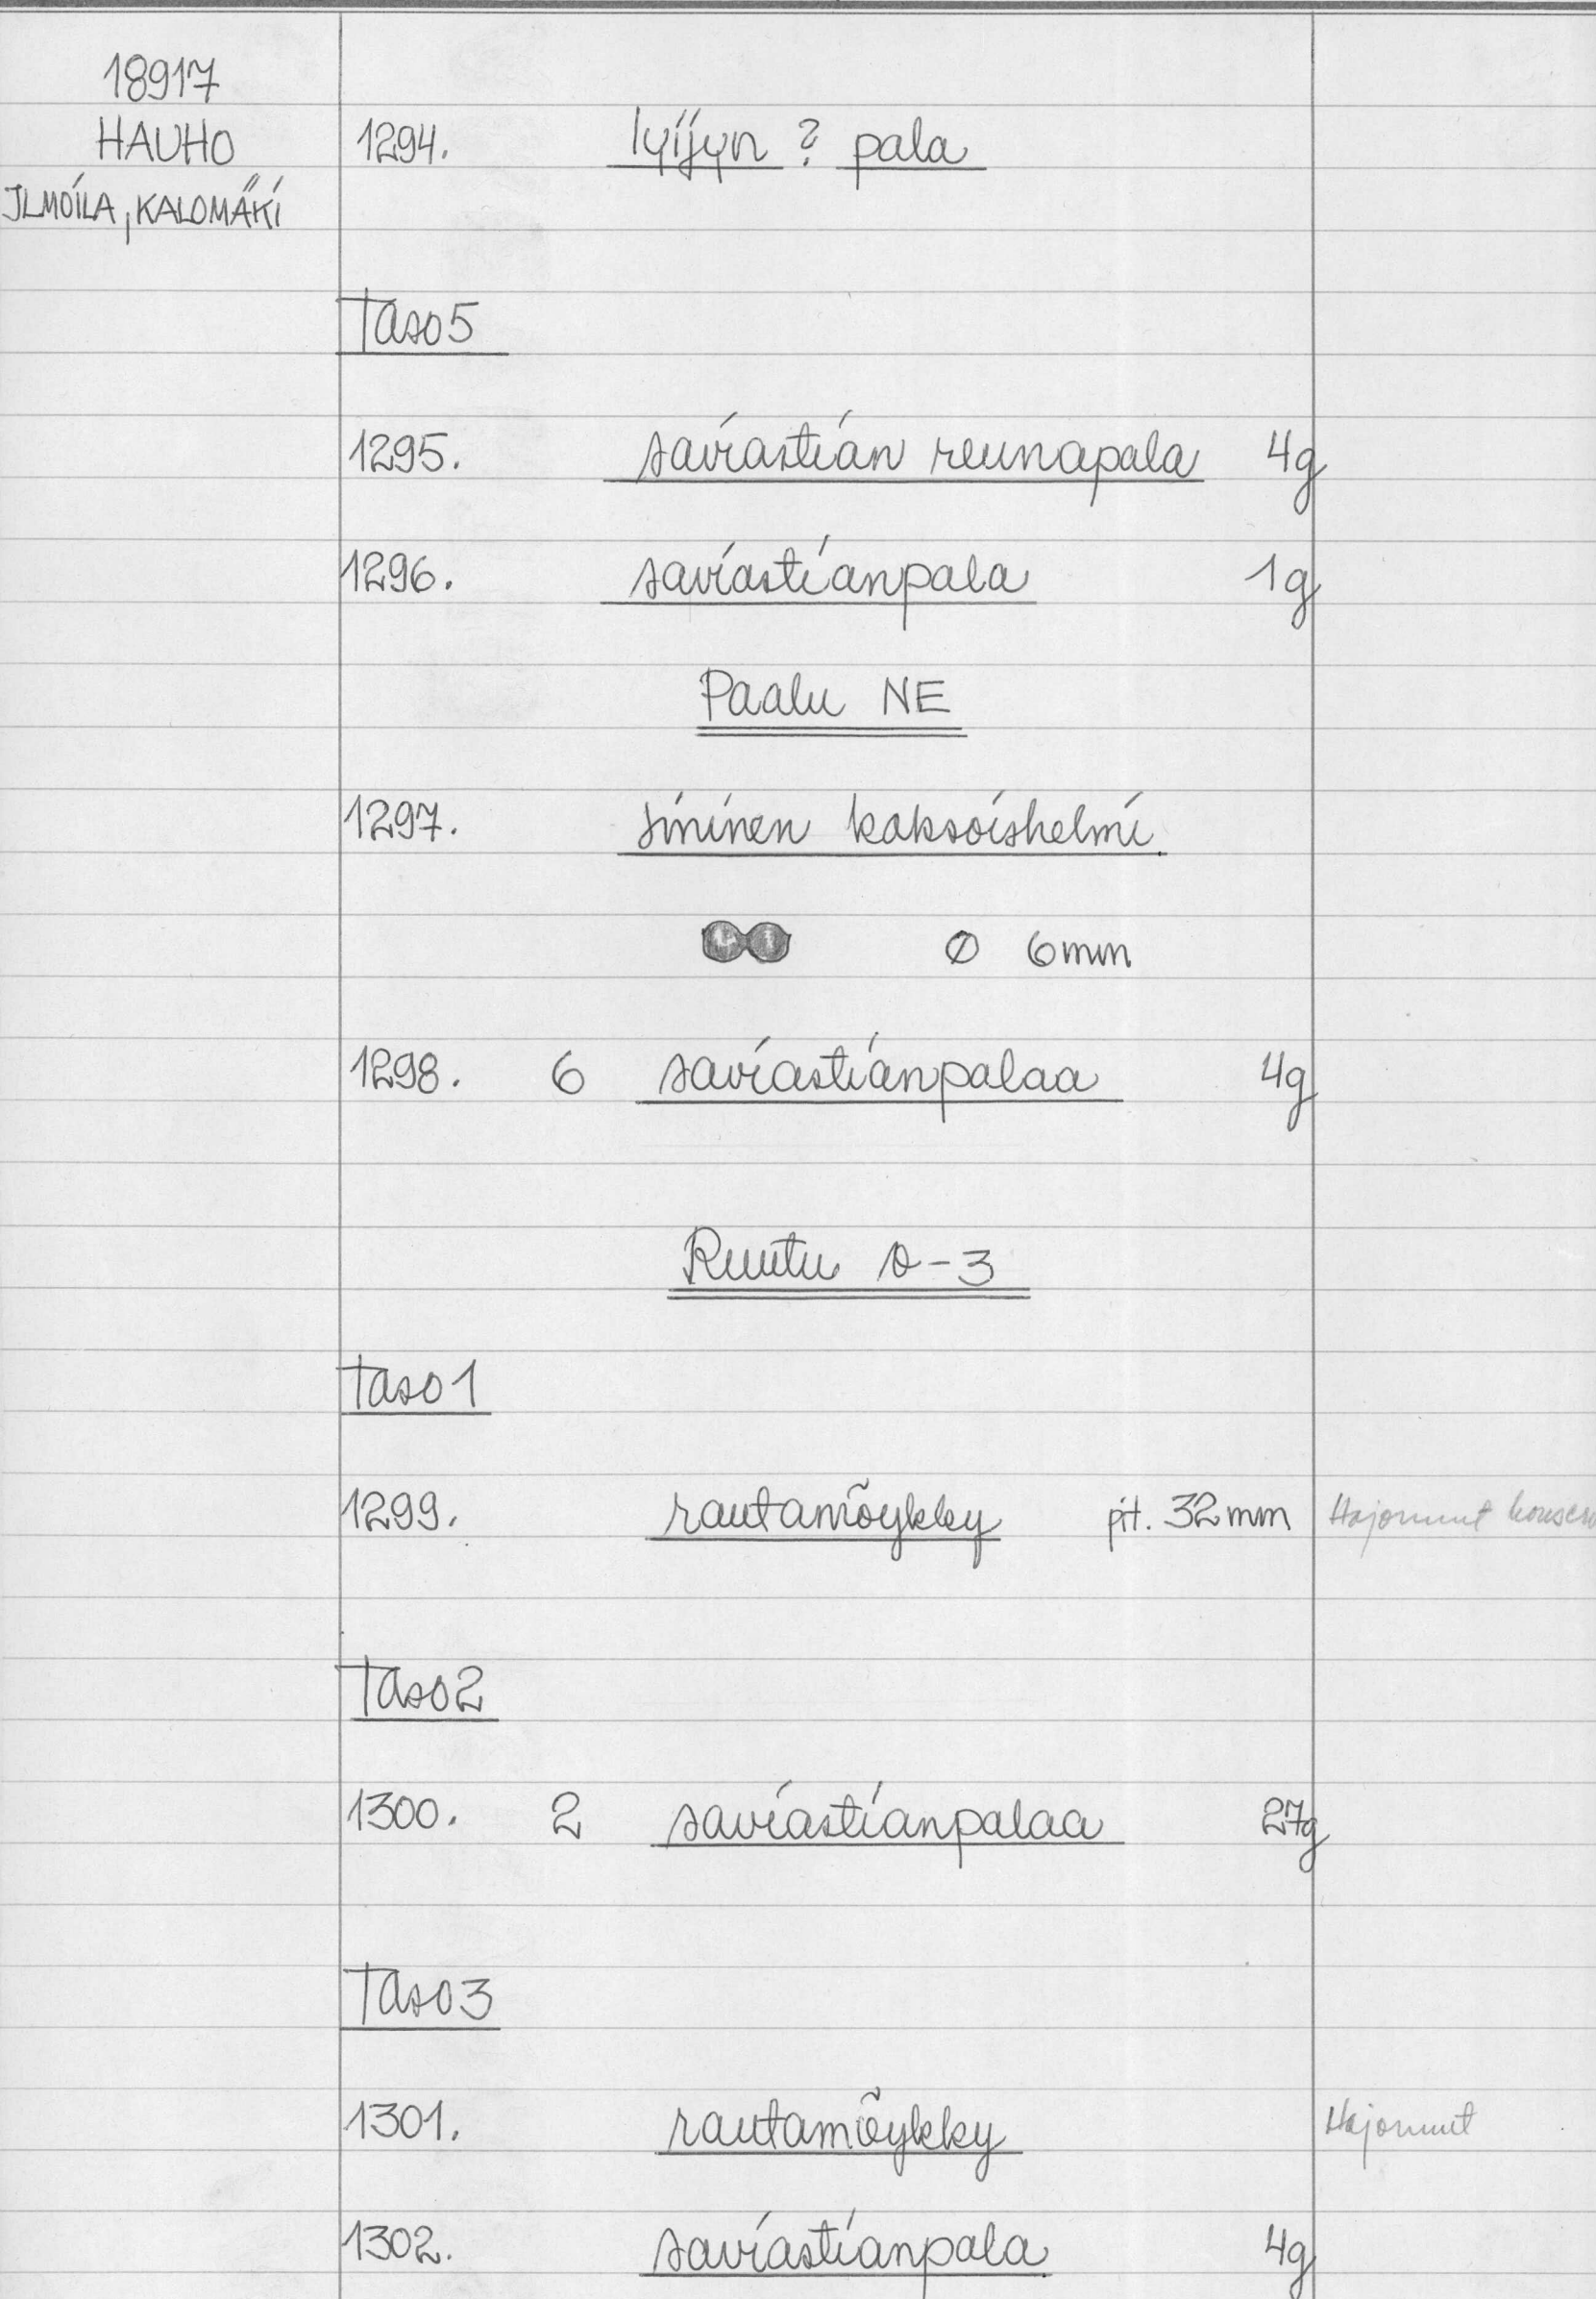 18917
HAUHO
ILMOILA, KALOMÄKI
1294. lyijyn ? pala
Taso 5
1295. saviastian reunapala 4g
1296. saviastianpala 1g
Paalu NE
1297. sininen kaksoishelmi.
Ø 6mm
1298. 6 saviastianpalaa 4g
Ruutu s-3
Taso 1
1299. rautamöykky pit. 32mm Hajonnut
Taso 2
1300. 2 saviastianpalaa 27g
Taso 3
1301. rautamöykky Hajonnut
1302. saviastianpala 4g